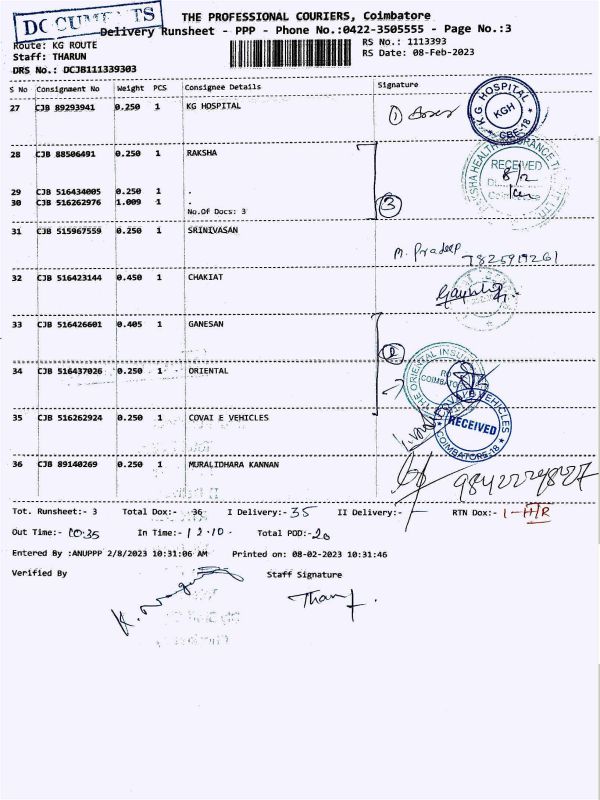 DOCUMENTS
THE PROFESSIONAL COURIERS, Coimbatore
Delivery Runsheet - PPP - Phone No.:0422-3505555 - Page No.:3
Route: KG ROUTE
RS No.: 1113393
Staff: THARUN
RS Date: 08-Feb-2023
DRS No.: DCJB111339303
S No Consignment No Weight PCS Consignee Details Signature
27 CJB 89293941 0.250 1 KG HOSPITAL
KG HOSPITAL KGH CBE-18
28 CJB 88506491 0.250 1 RAKSHA
RECEIVED
29 CJB 516434005 0.250 1 .
30 CJB 516262976 1.009 1 .
No.Of Docs: 3 3
31 CJB 515967559 0.250 1 SRINIVASAN
M. Pradeep 7825919261
32 CJB 516423144 0.450 1 CHAKIAT
33 CJB 516426601 0.405 1 GANESAN
34 CJB 516437026 0.250 1 ORIENTAL
THE ORIENTAL INSU RO COIMBATO
35 CJB 516262924 0.250 1 COVAI E VEHICLES
VEHICLES RECEIVED COIMBATORE-18
36 CJB 89140269 0.250 1 MURALIDHARA KANNAN
Tot. Runsheet:- 3 Total Dox:- 36 I Delivery:- 35 II Delivery:- RTN Dox:- 1-H/R
Out Time:- 10.35 In Time:- 12.10- Total POD:- 20
Entered By :ANUPPP 2/8/2023 10:31:06 AM Printed on: 08-02-2023 10:31:46
Verified By Staff Signature
Tharun